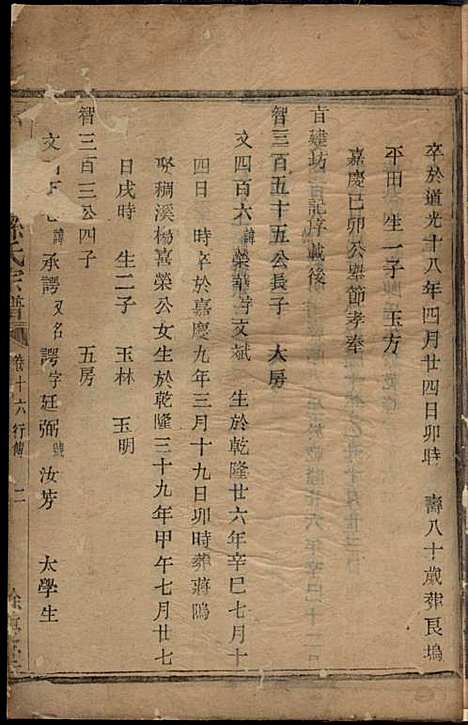 卒於道光十八年四月廿四日卯時 壽八十歲葬艮塢
平田 生一子 玉方
嘉慶己卯公舉節孝奉
旨建坊 百記序載後
智三百五十五公長子 大房
文四百六 諱榮華字文斌 生於乾隆廿六年辛巳七月十
四日 時卒於嘉慶九年三月十九日卯時葬蔣鴟
娶稠溪楊喜榮公女生於乾隆三十九年甲午七月廿七
日戌時 生二子 玉林 玉明
智三百三公四子 五房
文 諱承諤又名諤字廷弼號汝芳 太學生
孫氏宗譜 卷十六行傳 二